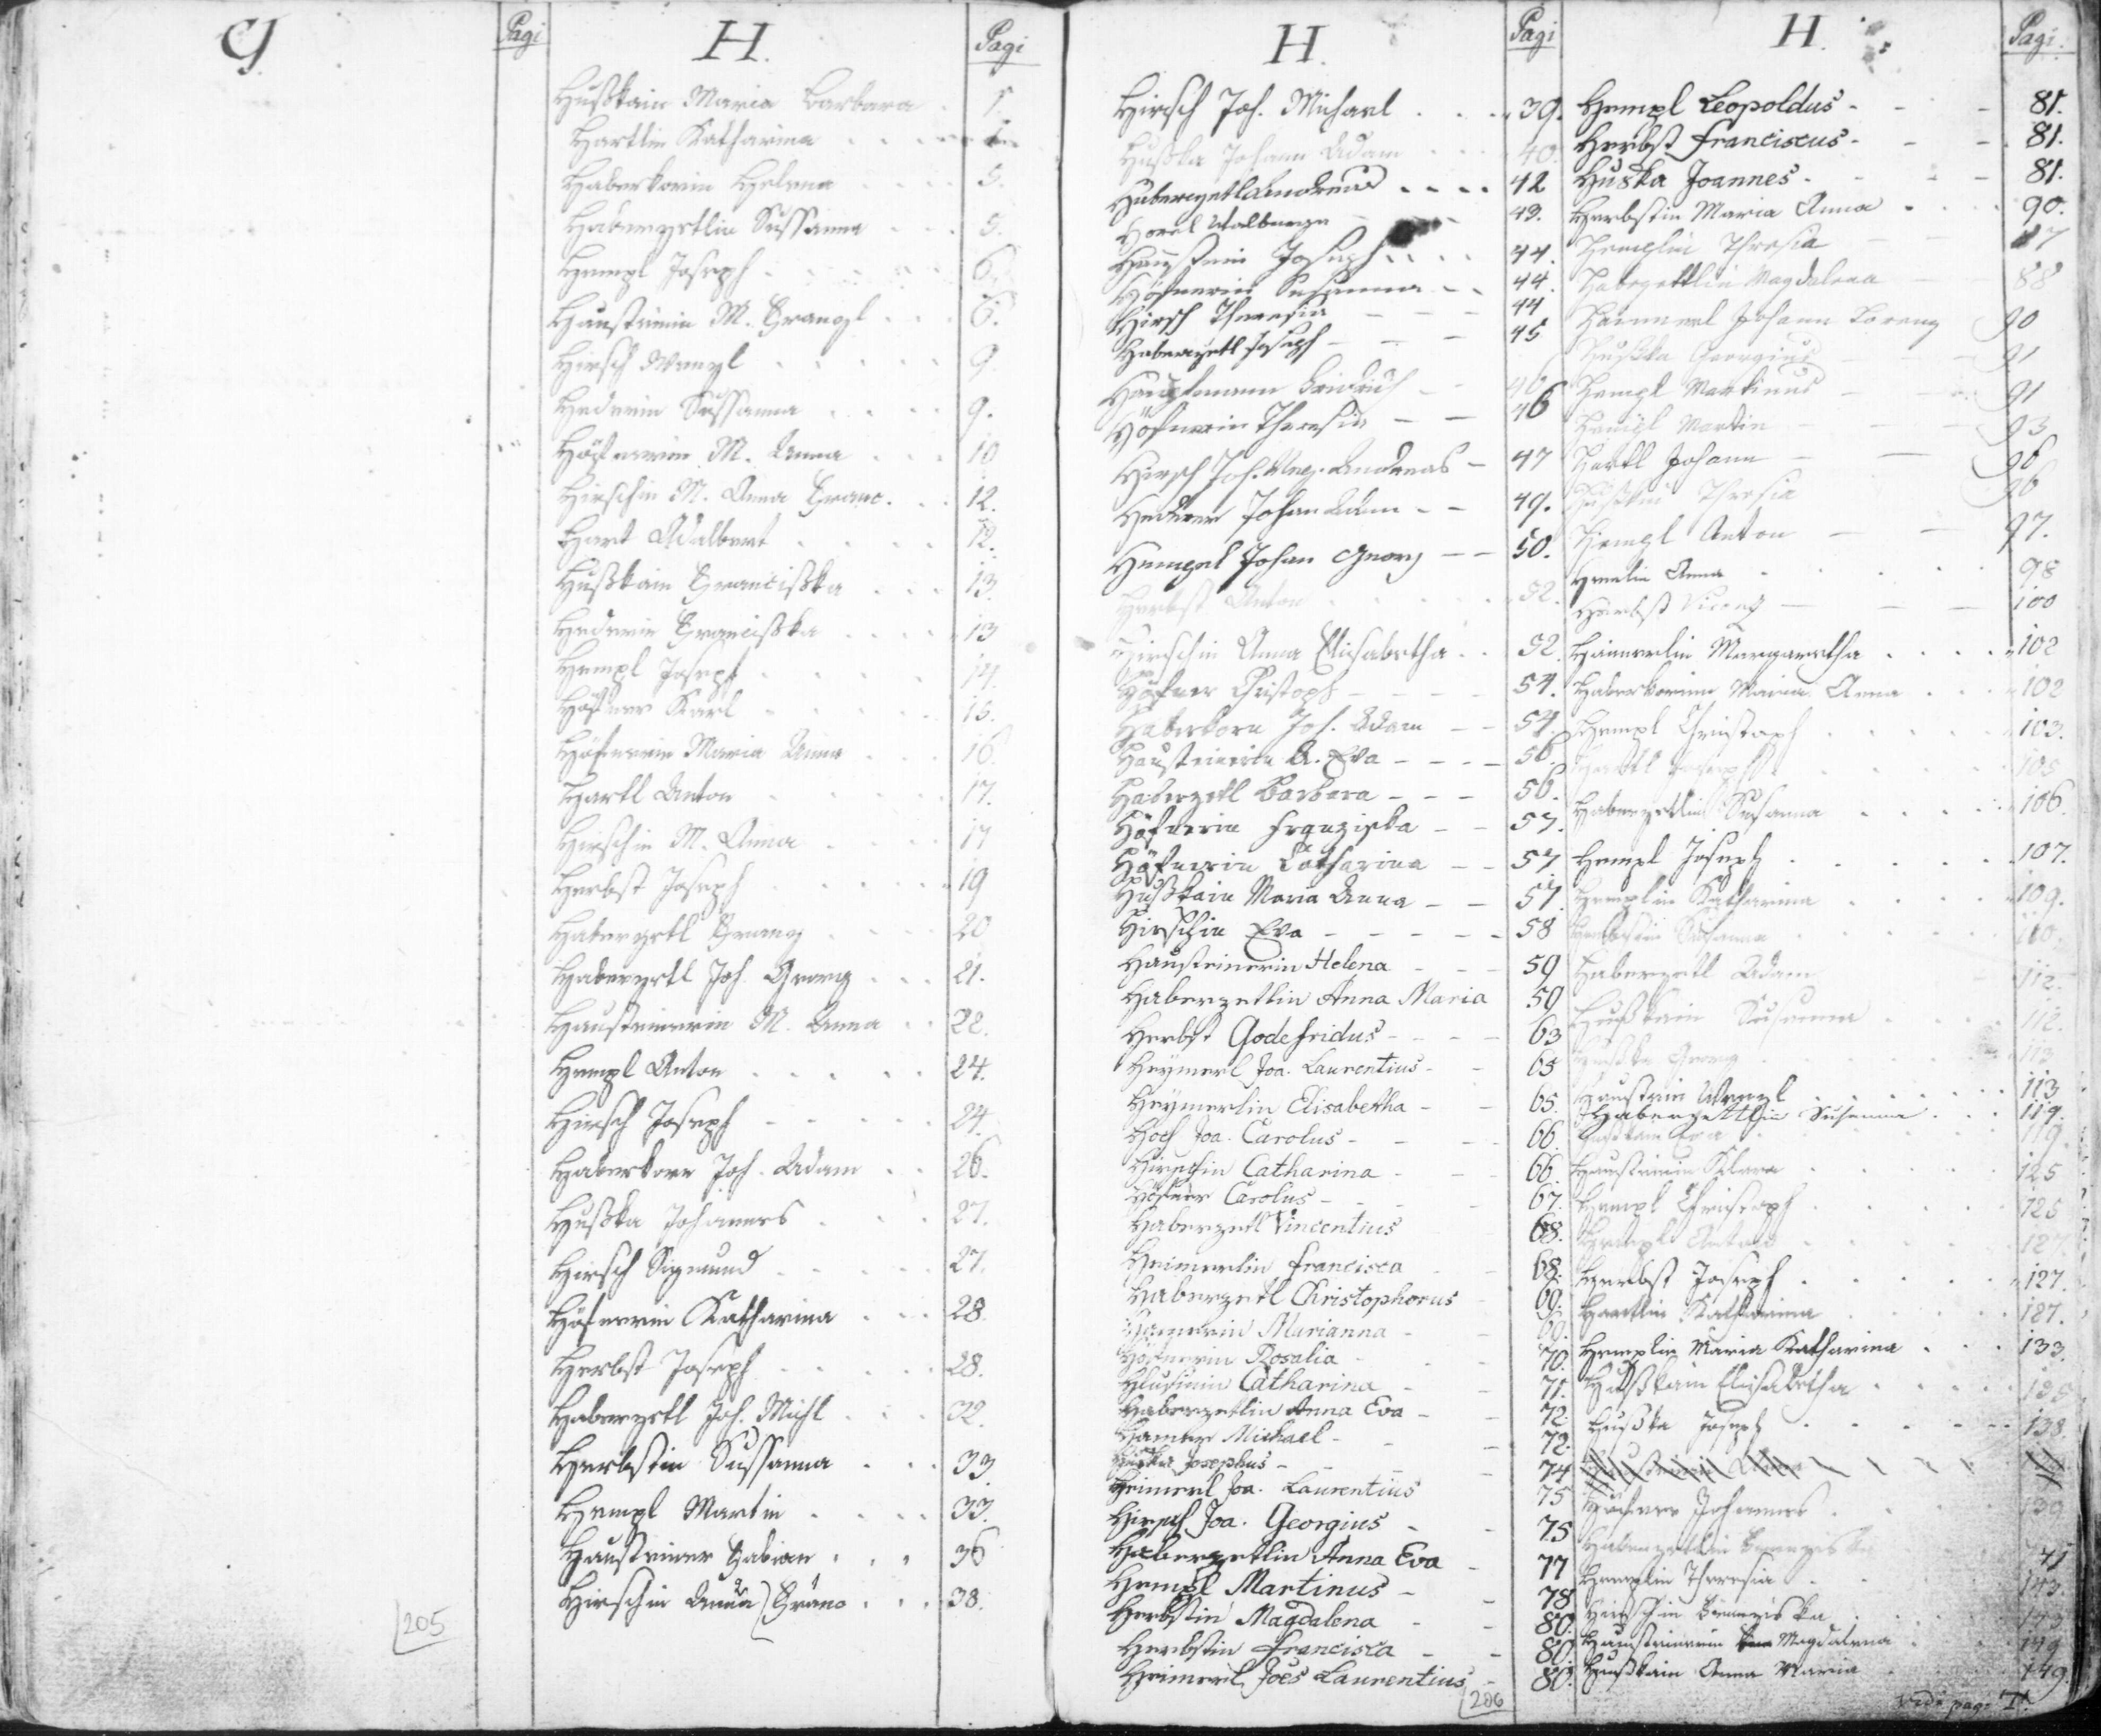 G.
Pagi
H.
Pagi
Hußkain Maria Barbara . 1
Hartlin Katharina . . .
Haberkorin Helena . . . 5.
Haberzetlin Sussanna . . . 5.
Hempl Joseph . . . . . 6.
Hausteinin M. Franzl . . . 6.
Hirsch Wenzl . . . . . 9
Hederin Sussanna . . . . 9.
Höfnerin M. Anna . . . 10
Hirschin M. Anna Franc. . . 12.
Hart Adalbert . . . . 12.
Hußkain Francißka . . . 13.
Hederin Francißka . . . . 13
Hempl Joseph . . . . . 14.
Höfner Karl . . . . . 15.
Höfnerin Maria Anna . . . 16.
Hartl Anton . . . . . 17.
Hirschin M. Anna . . . . 17
Herbst Joseph . . . . . 19
Haberzetl Franz . . . . 20
Haberzetl Joh. Georg . . . 21.
Hausteinerin M. Anna . . 22.
Hempl Anton . . . . . 24.
Hirsch Joseph . . . . . 24.
Haberkorn Joh. Adam . . 26.
Hußka Johannes . . . 27.
Hirsch Sigmund . . . . . 27.
Höfnerin Katharina . . . 28.
Herbst Joseph . . . . . 28.
Haberzetl Joh. Michl . . . 32.
Herbstin Sussanna . . . 33.
Hempl Martin . . . . 33.
Hausteiner Fabian . . . 36
Hirschin Anna Franc . . . 38.
205
H.
Pagi
Hirsch Joh. Michael . . . 39.
Hußka Johann Adam . . . 40.
Haberzetl Andreas . . . . 42
Walburga 43.
Joseph . . . . 44.
Höfnerin Susanna - - 44.
Hirsch Theresia - - - 44
Haberzetl Joseph - - - 45
Hauptmann - - 46
Höfnerin Theresia - - 46
Hirsch Joh. Andreas - 47
Hederer Johan Adam - - 49.
Hempel Johan Georg - - 50.
Herbst Anton . . . . . 52.
Hirschin Anna Elisabetha . . 52.
Höfner Christoph - - - - 54.
Haberkorn Joh. Adam - - 54.
Hausteinerin A. Eva - - - - 56.
Haberzetl Barbara - - - 56.
Höfnerin Franziska - - 57.
Höfnerin Catharina - - 57
Hußkain Maria Anna - - 57.
Hirschin Eva - - - - - 58
Hausteinerin Helena - - - 59
Haberzetlin Anna Maria 59
Herbst Godefridus - - - - 63
Heymerl Joa. Laurentius - - 65
Heymerlin Elisabetha - - 65.
Joa. Carolus - - - - 66.
Hirschin Catharina - - - 66.
Höfner Carolus - - - 67.
Haberzetl Vincentius 68.
Heimerlin Francisca - - 68.
Haberzetl Christophorus - 69.
Marianna - - 69.
Höfnerin Rosalia - - - 70.
Catharina - - 71.
Haberzetlin Anna Eva - - 72.
Michael - - - 72.
Huska Josephus - - - - 74
Heimerl Joa. Laurentius 75
Hirsch Joa. Georgius - - 75
Haberzetlin Anna Eva - 77
Hempl Martinus - - 78.
Herbstin Magdalena - - 80.
Herbstin Francisca - - 80.
Heimerl Joes Laurentius - 80.
206
H.
Pagi.
Hempl Leopoldus - - - 81.
Herbst Franciscus - - - 81.
Huska Joannes - - - 81.
Herbstin Maria Anna . . . 90.
Hemplin Thresia - - 87
Haberzettlin Magdalena - 88
Haimerl Johann Lorenz 90
Hußka Georgius - 91
Hempl Martinus - - 91
Hempl Martin - - - 93
Hartl Johann - - 96
Hußkin Thresia 96
Hempl Anton - - 97.
Anna . . . . . 98
Herbst Vicenz - - - 100
Haimerlin Margaretha . . . . 102
Haberkorinn Maria Anna . . . 102
Hempl Christoph . . . . . 103.
Hartl Joseph . . . . . 105
Haberzetlin Susanna . . . . 106.
Hempl Joseph . . . . . 107.
Hemplin Katharina . . . . 109.
Herbstin Susanna . . . . . 110.
Haberzetl Adam 112.
Hußkain Susanna . . . 112.
Hußka Georg . . . . . 113
Haustein Wenzl . . . . . . 113
Haberzettlin Susanna . . . 119.
Hußkain Eva . . . . . . 119.
Hausteinin Klara . . . . . 125
Hempl Christoph . . . . . 125
Hempl Anton . . . . . 127.
Herbst Joseph . . . . . . 127.
Hartlin Katharina . . . . 127.
Hemplin Maria Katharina . . . 133.
Hußkain Elisabetha . . . . . 135
Hußka Joseph . . . . . . 138.
Johannes . . . 139
Haberzetlin Franziska 141
Hemplin Theresia . . . 143.
Hirschin Franziska . . . . 143
Hausteinerin Magdalena . . 149
Hußkain Anna Maria . . . 149.
Vide pag: T.